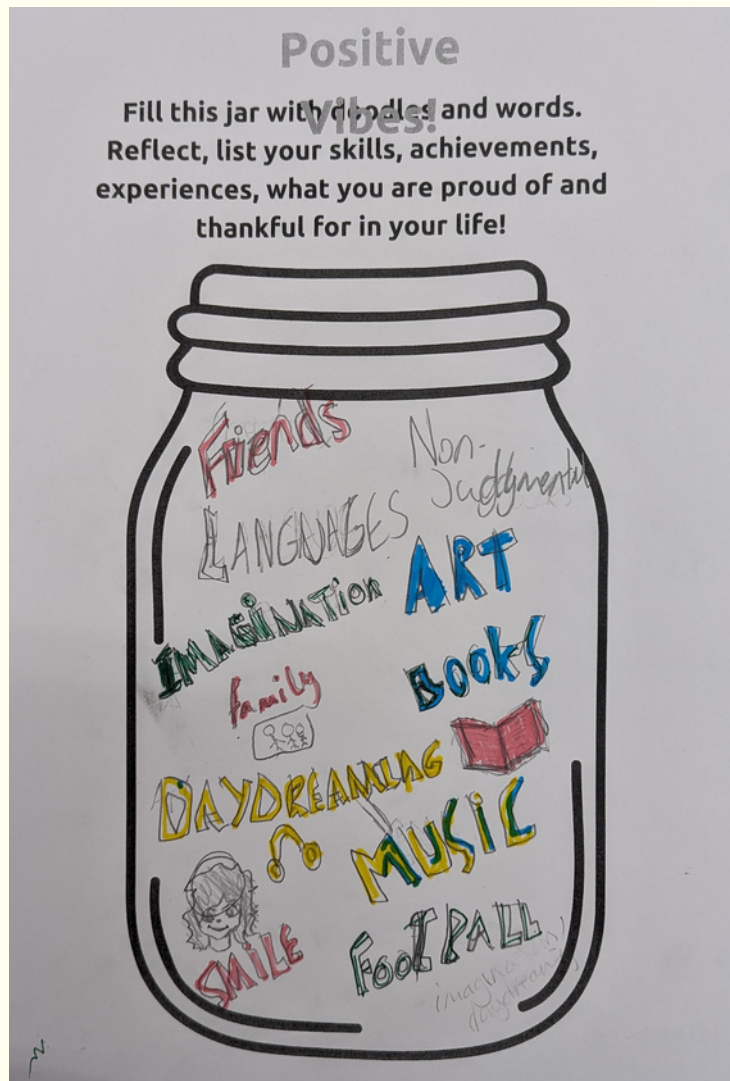 Positive
Vibes!
Fill this jar with doodles and words.
Reflect, list your skills, achievements,
experiences, what you are proud of and
thankful for in your life!
Friends
Non-
Judgymental
LANGUAGES
IMAGINATION
ART
family
Books
DAYDREAMING
MUSIC
SMILE
FOOTBALL
imagination/
daydreaming